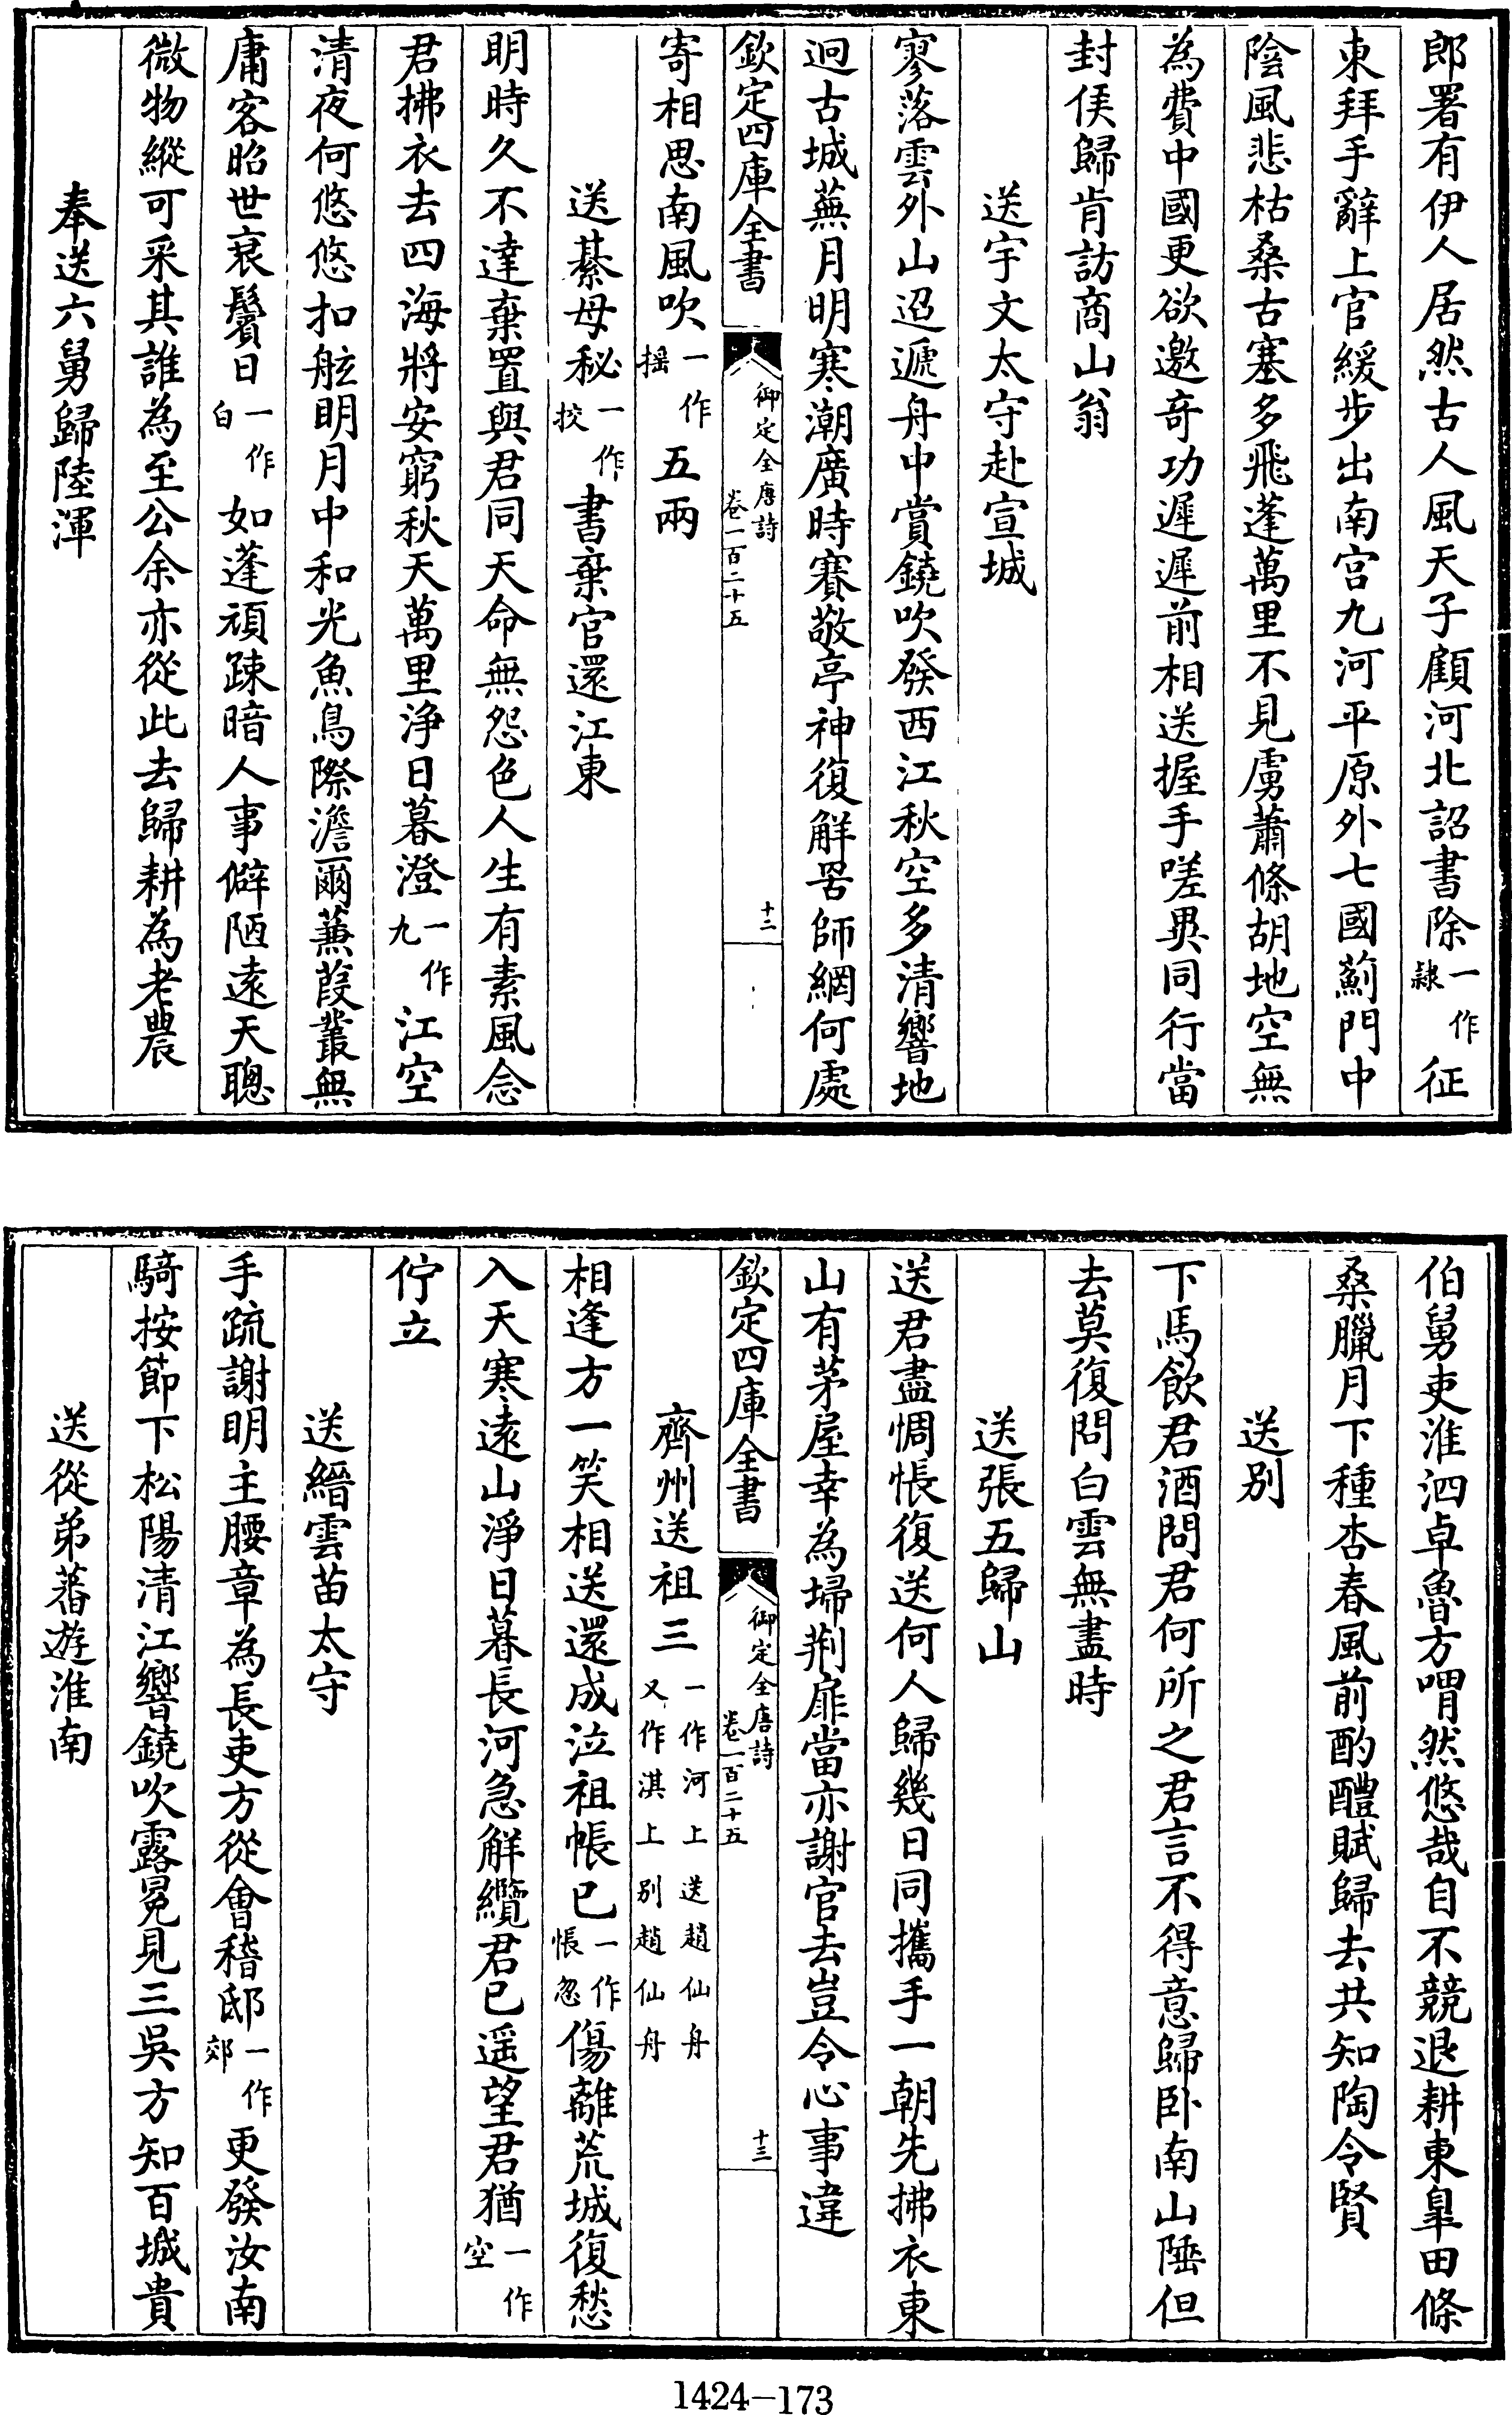 郎署有伊人居然古人風天子顧河北詔書除一作隸征
東拜手辭上官緩步出南宫九河平原外七國薊門中
陰風悲枯桑古塞多飛蓬萬里不見虜蕭條胡地空無
為費中國更欲邀奇功遲遲前相送握手嗟異同行當
封侯歸肯訪商山翁
送宇文太守赴宣城
寥落雲外山迢遞舟中賞鐃吹發西江秋空多清響地
迥古城蕪月明寒潮廣時賽敬亭神復解罟師網何處
欽定四庫全書
御定全唐詩
卷一百二十五
十二
寄相思南風吹一作摇五兩
送綦毋秘一作挍書棄官還江東
明時久不達棄置與君同天命無怨色人生有素風念
君拂衣去四海將安窮秋天萬里浄日暮澄一作九江空
清夜何悠悠扣舷明月中和光魚鳥際澹爾蒹葭叢無
庸客昭世衰鬢日一作白如蓬頑踈暗人事僻陋逺天聰
微物縱可采其誰為至公余亦從此去歸耕為老農
奉送六舅歸陸渾
伯舅吏淮泗卓魯方喟然悠哉自不競退耕東臯田條
桑臘月下種杏春風前酌醴賦歸去共知陶令賢
送别
下馬飲君酒問君何所之君言不得意歸卧南山陲但
去莫復問白雲無盡時
送張五歸山
送君盡惆悵復送何人歸幾日同攜手一朝先拂衣東
山有茅屋幸為埽荆扉當亦謝官去豈令心事違
欽定四庫全書
御定全唐詩
卷一百二十五
十三
齊州送祖三一作河上送趙仙舟又作淇上别趙仙舟
相逢方一笑相送還成泣祖帳已一作悵忽傷離荒城復愁
入天寒逺山淨日暮長河急解纜君已遥望君猶一作空
佇立
送縉雲苗太守
手疏謝明主腰章為長吏方從會稽邸一作郊更發汝南
騎按節下松陽清江響鐃吹露冕見三吳方知百城貴
送從弟蕃遊淮南
1424-173